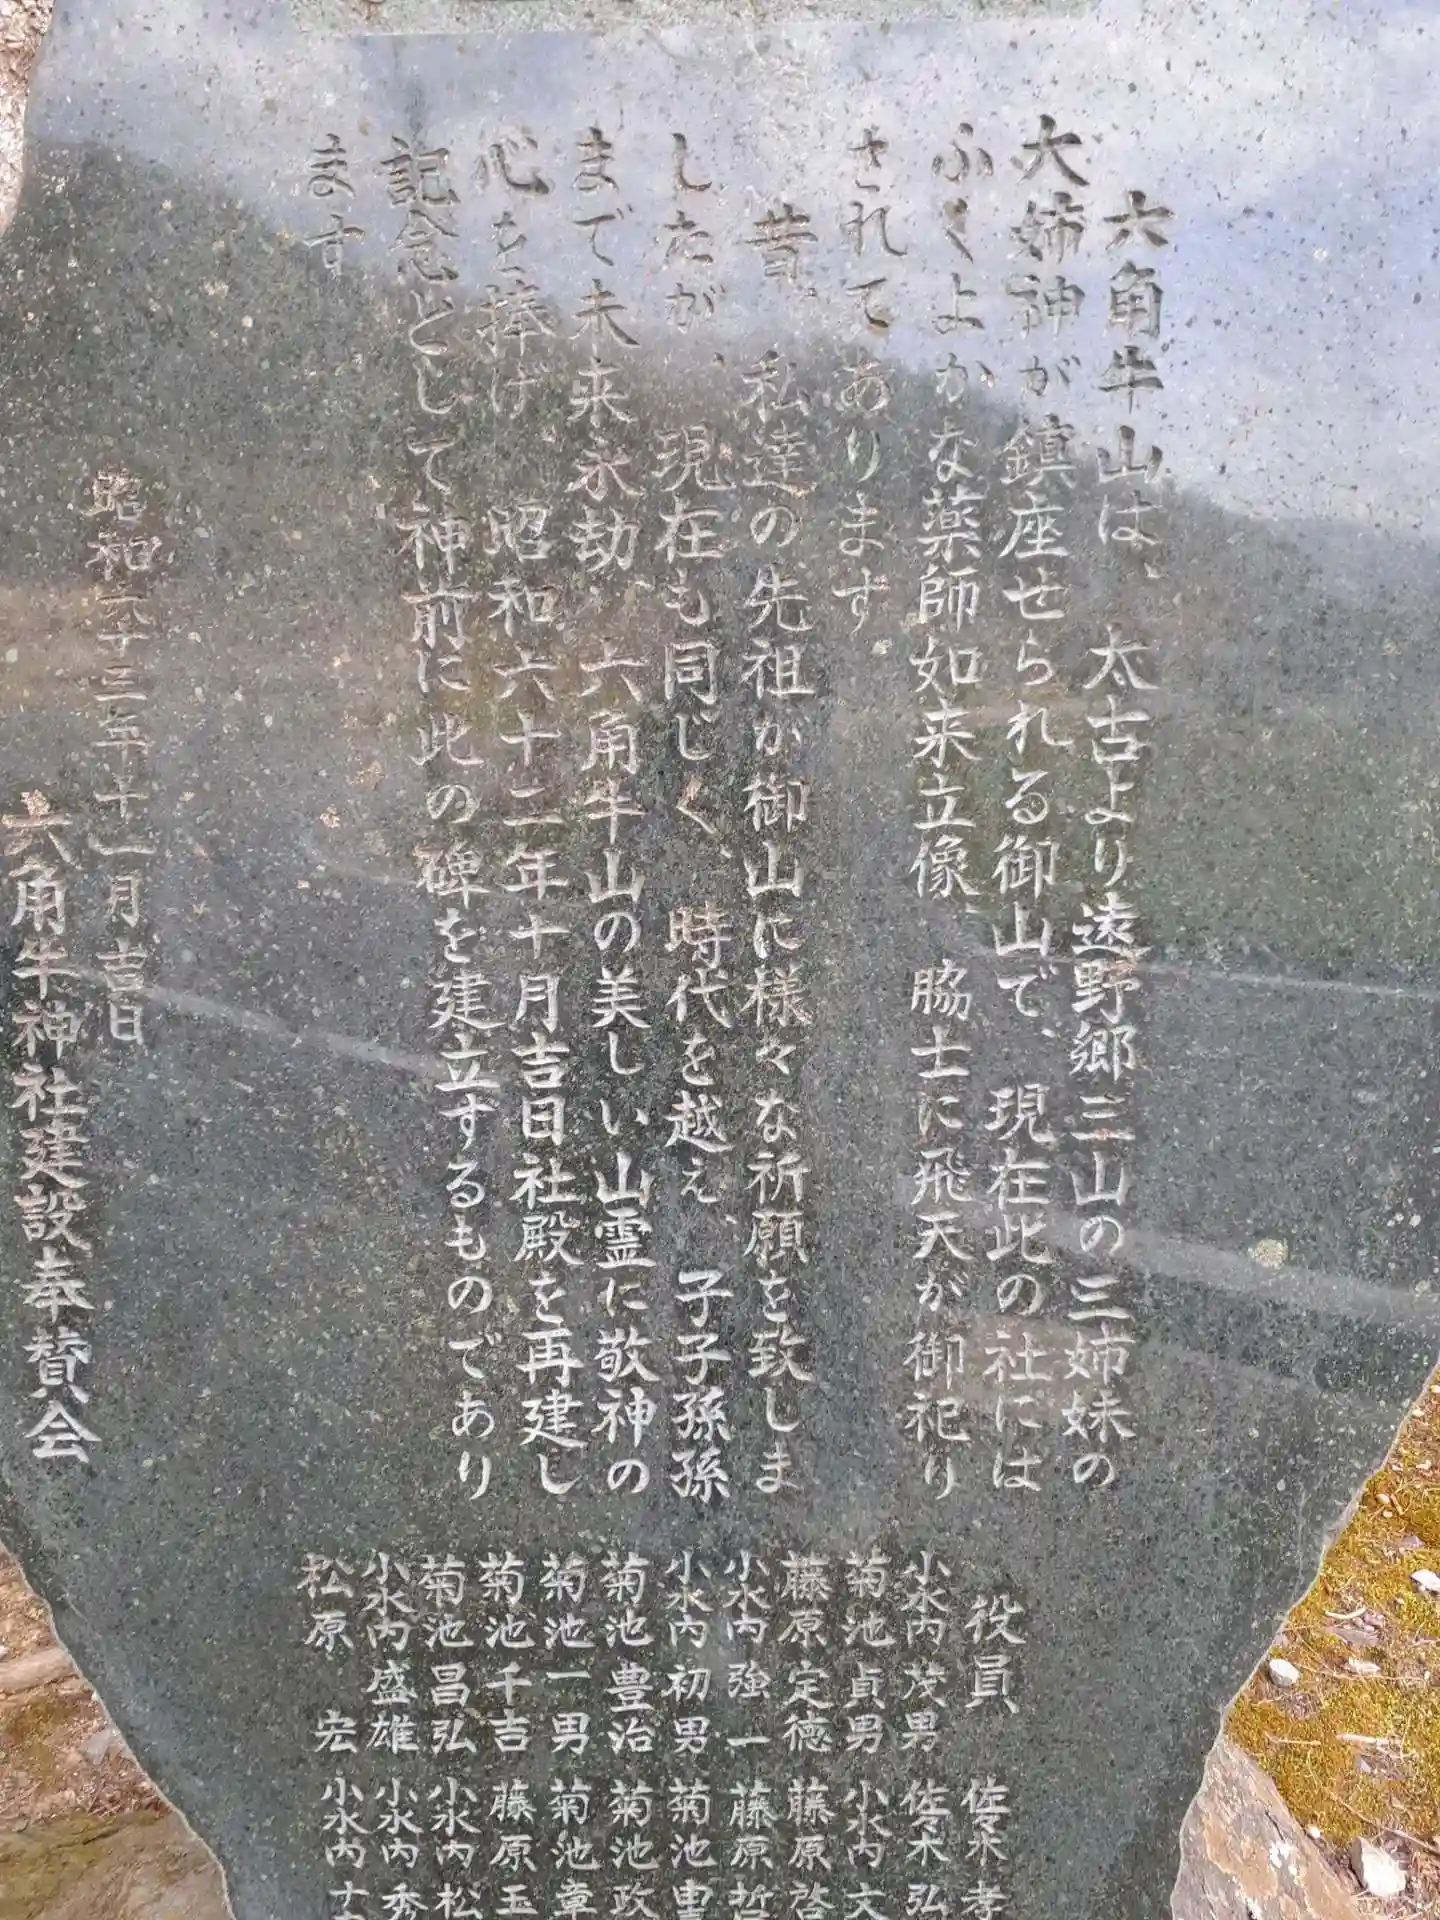 六角牛山は、太古より遠野郷三山の三姉妹の
大姉神が鎮座せられる御山で、現在此の社には
ふくよかな薬師如来立像、脇士に飛天が御祀り
されてあります
昔、私達の先祖が御山に様々な祈願を致しま
したが、現在も同じく、時代を越え、子子孫孫
まで未来永劫、六角牛山の美しい山霊に敬神の
心を捧げ、昭和六十二年十月吉日社殿を再建し
記念として神前に此の碑を建立するものであり
ます
昭和六十三年十一月吉日
六角牛神社建設奉賛会
役員
小水内茂男
菊池貞男
藤原定徳
小水内強一
小水内初男
菊池豊治
菊池一男
菊池千吉
菊池昌弘
小水内盛雄
松原宏
佐々木孝
佐々木弘
小水内文
藤原啓
藤原哲
菊池
菊池政
菊池章
藤原玉
小水内松
小水内秀
小水内